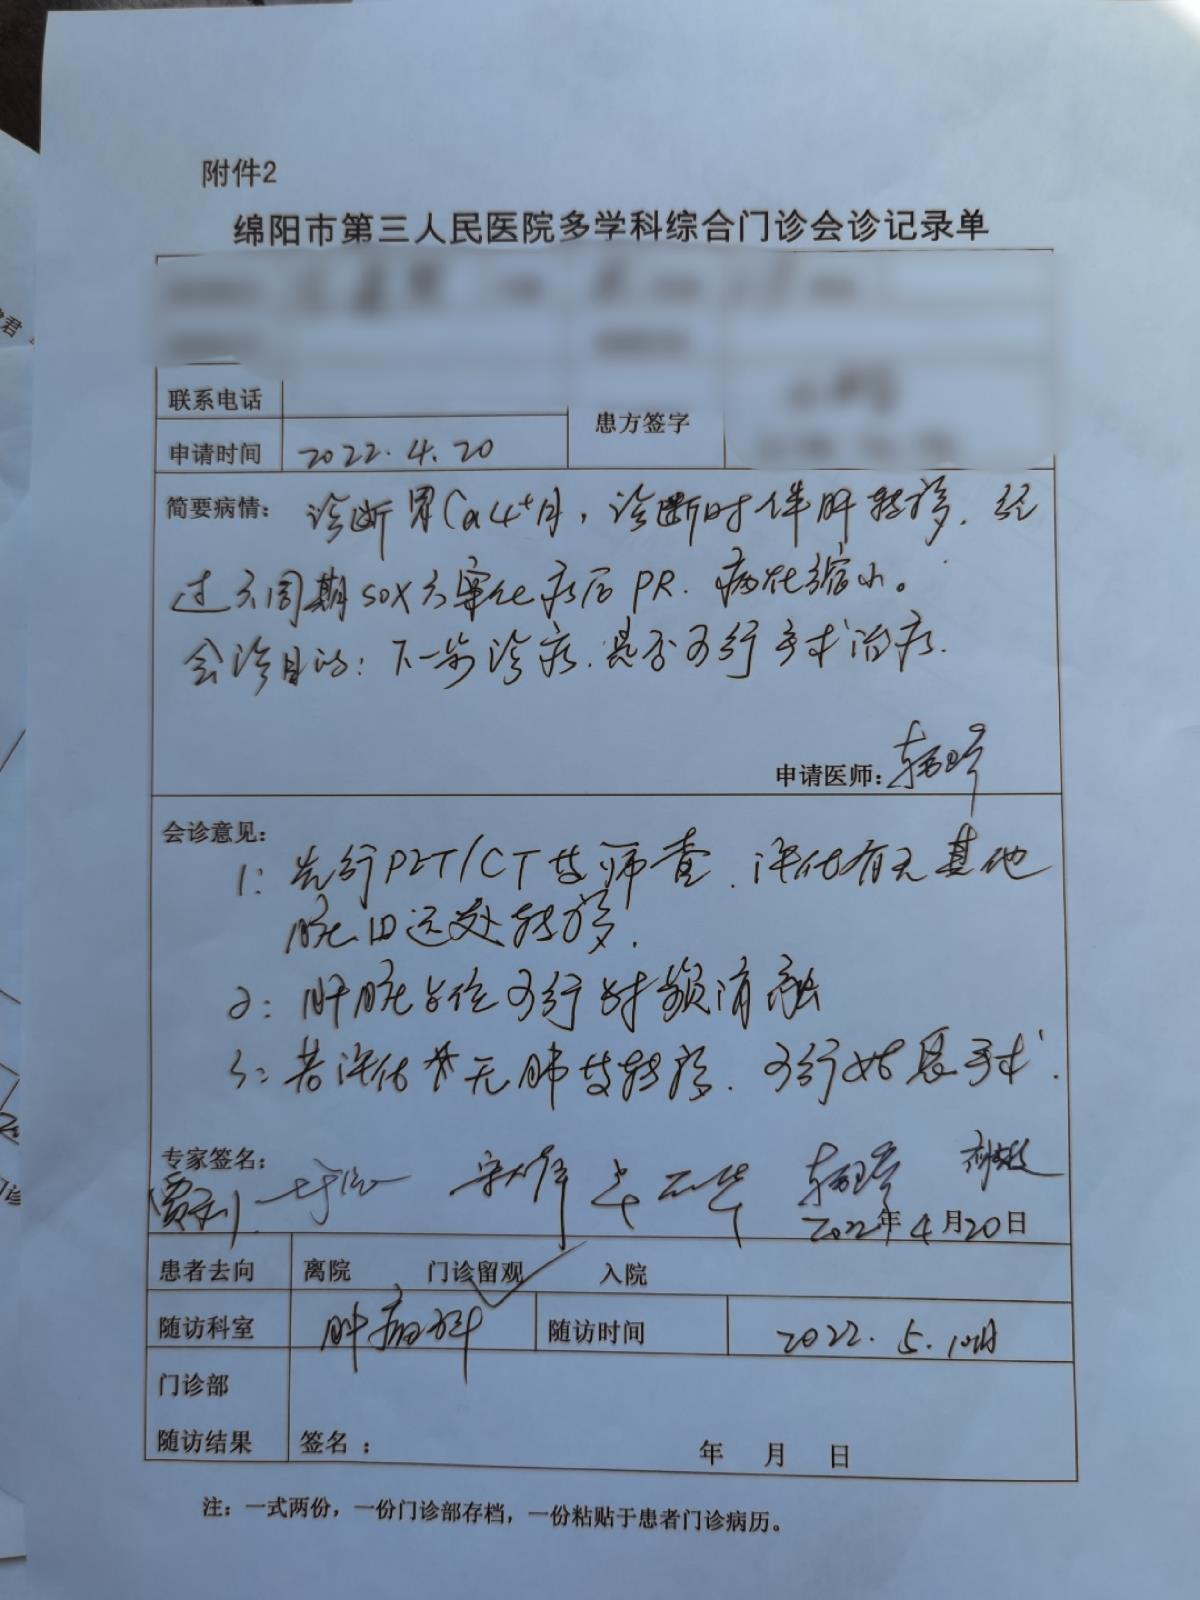 附件2
绵阳市第三人民医院多学科综合门诊会诊记录单
联系电话
患方签字
申请时间 2022.4.20
简要病情: 诊断胃Ca4⁺月,诊断时伴肝转移.经
过六周期SOX方案化疗后PR.病灶缩小。
会诊目的:下一步诊疗.是否可行手术治疗.
申请医师:
会诊意见:
1: 先行PET/CT等筛查.评估有无其他
脏器远处转移.
2: 肝脏占位可行射频消融
3: 若评估若无肺等转移.可行姑息手术.
专家签名:
2022年4月20日
患者去向 离院 门诊留观 入院
随访科室 肿瘤科 随访时间 2022.5.10
门诊部
随访结果 签名: 年 月 日
注:一式两份,一份门诊部存档,一份粘贴于患者门诊病历。